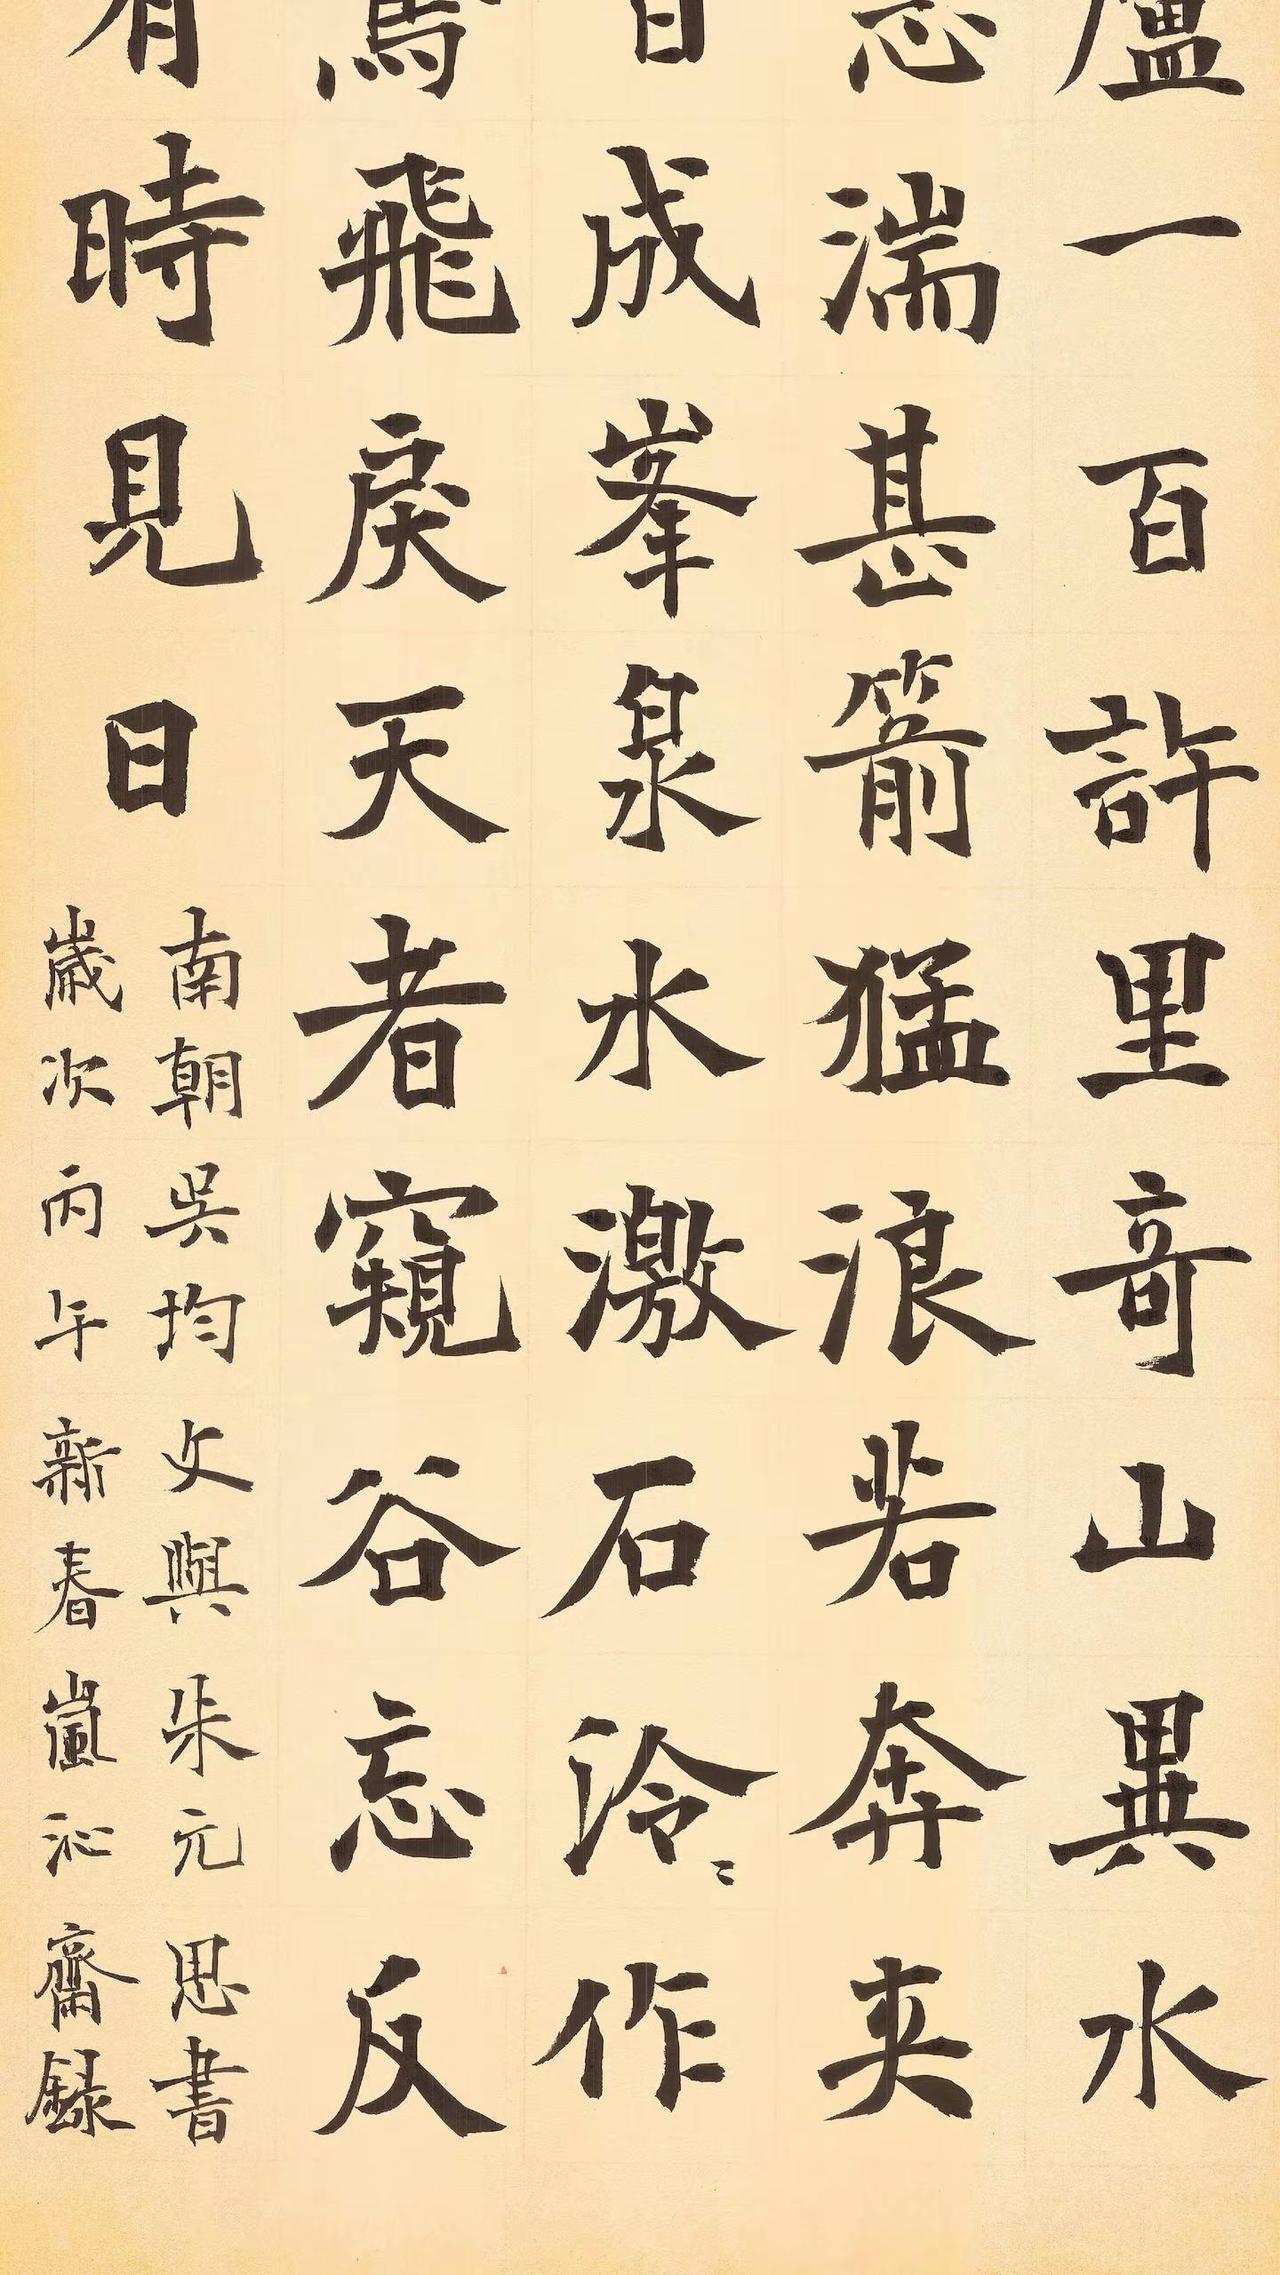 廬一百許里奇山異水
忩湍甚箭猛浪若奔夾
日成峯泉水激石泠〻作
鳶飛戾天者窺谷忘反
有時見日
南朝吳均文與朱元思書
歲次丙午新春嵐沁齋錄